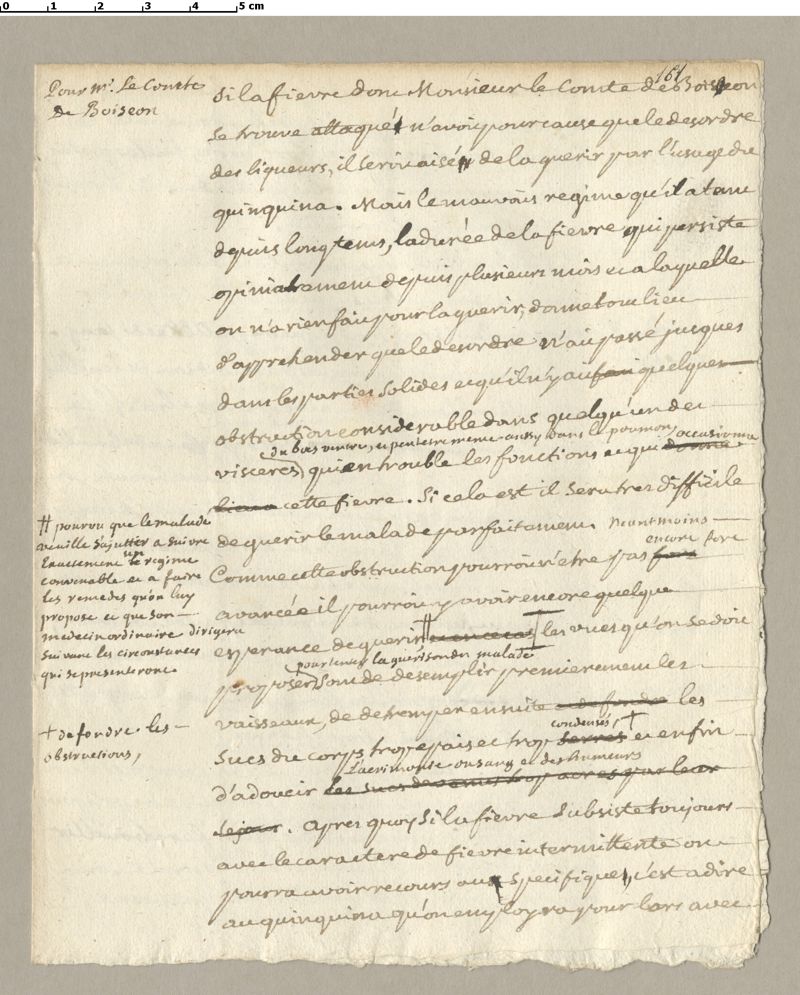 0 1 2 3 4 5 cm
161
Pour Mr. Le Comte
De Boiseon
Si la fievre dont Monsieur le Comte de Boiseon
se trouve attaqué n'avoit pour cause que le desordre
des liqueurs, il seroit aisé de la guerir par l'usage du
quinquina. Mais le mauvais regime qu'il a tenu
depuis longtems, la durée de la fievre qui persiste
opiniatrement depuis plusieurs mois et a laquelle
on n'a rien fait pour la guerir, donne tout lieu
d'apprehender que le desordre n'ait passé jusques
dans les parties solides et qu'il n'y ait quelque
obstruction considerable dans quelqu'un des
du bas ventre, et peut etre meme aussy dans le poumon,
visceres, qui en trouble les fonctions et qui donne occasionne
lieu a cette fievre. Si cela est il sera tres difficile
de guerir le malade parfaitement. neantmoins
encore fort
Comme cette obstruction pourroit n'etre pas fort
avancée il pourroit y avoir encore quelque
esperance de guerir les vues qu'on se doit
pour tenter la guerison du malade
proposer sont de desemplir premierement les
vaisseaux, de detremper ensuite les
condensés, +
sucs du corps trop epais et trop serrés et enfin
l'acrimonie du sang et des humeurs
d'adoucir les sucs devenus trop acres par leur
sejour. Apres quoy si la fievre subsiste toujours
avec le caractere de fievre intermittente on
pourra avoir recours au specifique, c'est a dire
au quinquina qu'on employra pour lors avec
# pourvu que le malade
veuille s'ajutter a suivre
exactement un regime
convenable et a faire
les remedes qu'on luy
propose et que son
medecin ordinaire dirigera
suivant les circonstances
qui se presenteront.
+ de fondre les
obstructions,